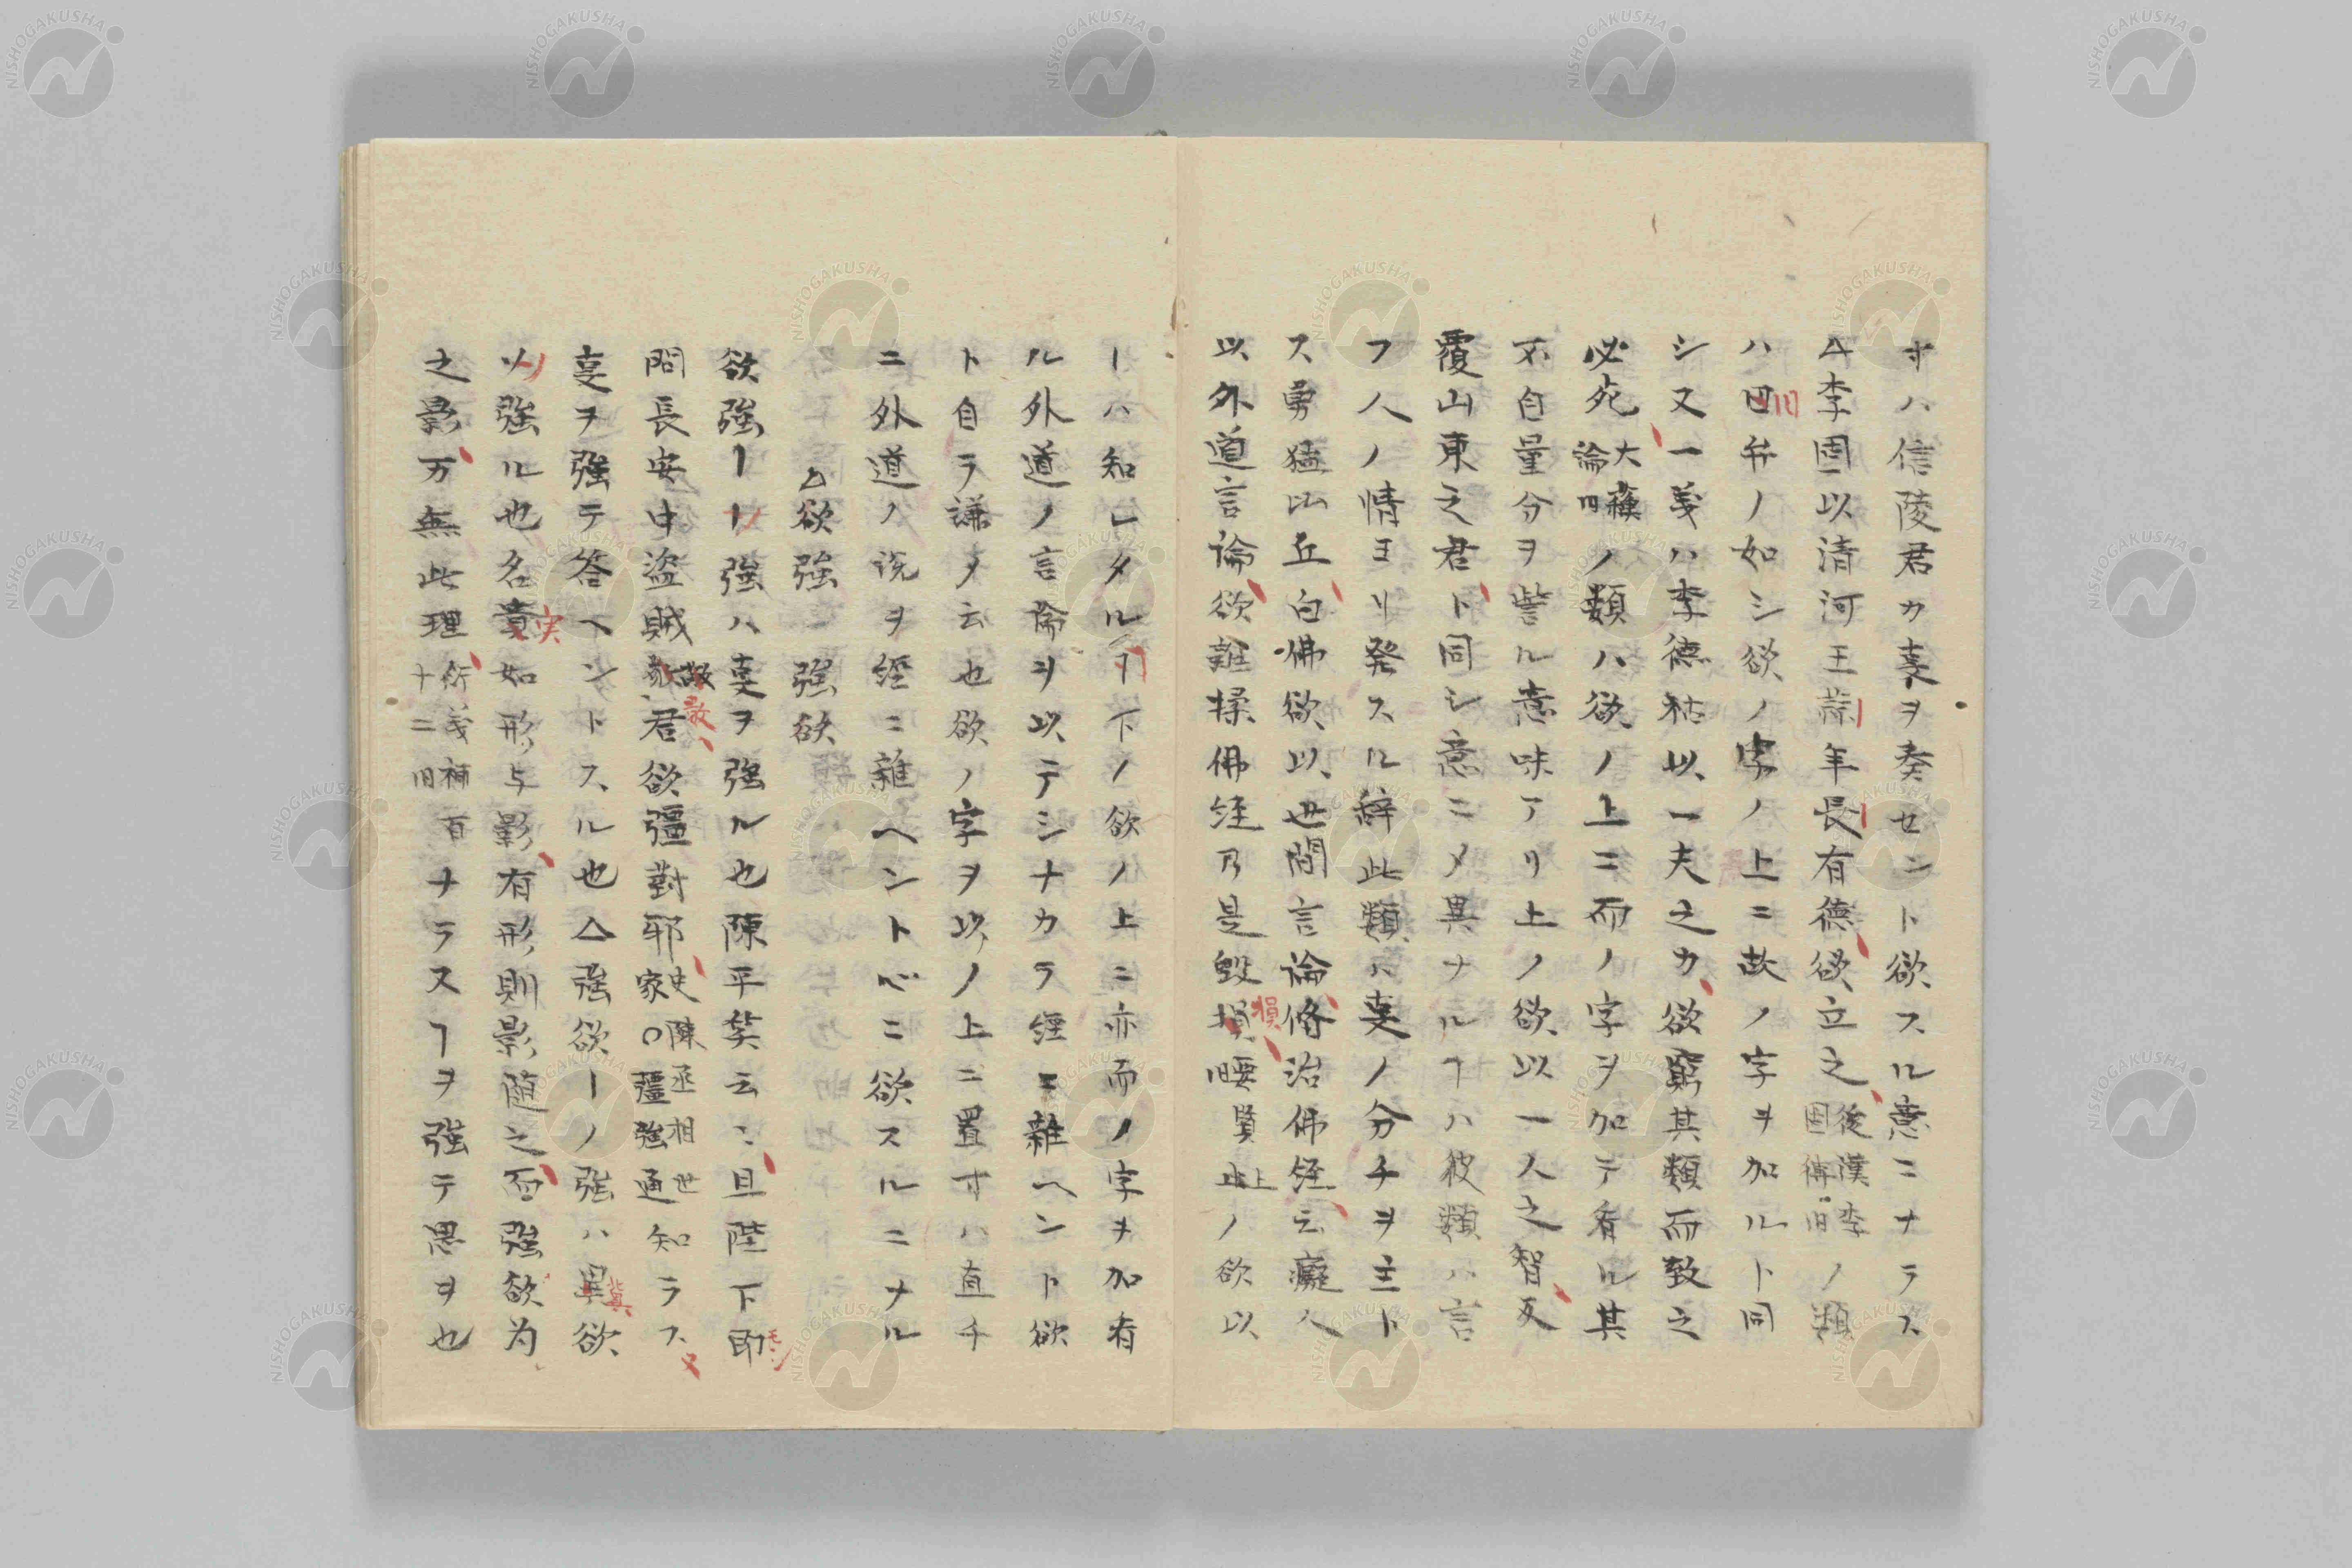 寸ハ信陵君カ事ヲ奏セント欲スル意ニナラス
△李固以清河王蒜年長有徳欲立之後漢李固傳旧ノ類
ハ旧弁ノ如シ欲ノ字ノ上ニ故ノ字ヲ加ルト同
シ又一義ハ李徳祐以一夫之力欲窮其類而致之
必死大蘓論旧ノ類ハ欲ノ上ニ而ノ字ヲ加テ看ル其
不自量分ヲ訾ル意味アリ上ノ欲以一人之智反
覆山東之君ト同シ意ニメ異ナルヿハ彼類ハ言
フ人ノ情ヨリ発スル辞此類ハ事ノ分チヲ主ト
ス勇猛比丘白佛欲以世間言論脩治佛経云癡人
以外道言論欲雜揉佛経乃是毀損 上ノ欲以
ーハ知レタルヿ下ノ欲ノ上ニ亦而ノ字ヲ加有
ル外道ノ言論ヲ以テシナカラ経ニ雜ヘント欲
ト自ラ謙メ云也欲ノ字ヲ以ノ上ニ置寸ハ直チ
ニ外道ノ説ヲ経ニ雜ヘント心ニ欲スルニナル
△欲強 強欲
欲強ーー強ハ事ヲ強ル也陳平笑云ゝ且陛下即
問長安中盗賊数君欲彊對耶史陳丞相世家○彊強通知ラス
事ヲ強テ答ヘントスル也△強欲ーノ強ハ冀欲
以強ル也名実如形与影有形則影随之而強欲为
之影万無此理衍義補百十二旧ナラスヿヲ強テ思ヲ也